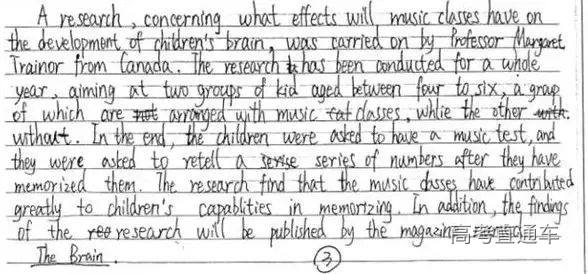 A research, concerning what effects will music classes have on
the development of children's brain, was carried on by Professor Margaret
Trainor from Canada. The research has been conducted for a whole
year, aiming at two groups of kid aged between four to six, a group
of which are arranged with music classes, whlie the other
without. In the end, the children were asked to have a music test, and
they were asked to retell a series of numbers after they have
memorized them. The research find that the music classes have contributed
greatly to children's capablities in memorizing. In addition, the findings
of the research will be published by the magazine, named
The Brain.
③
高考直通车